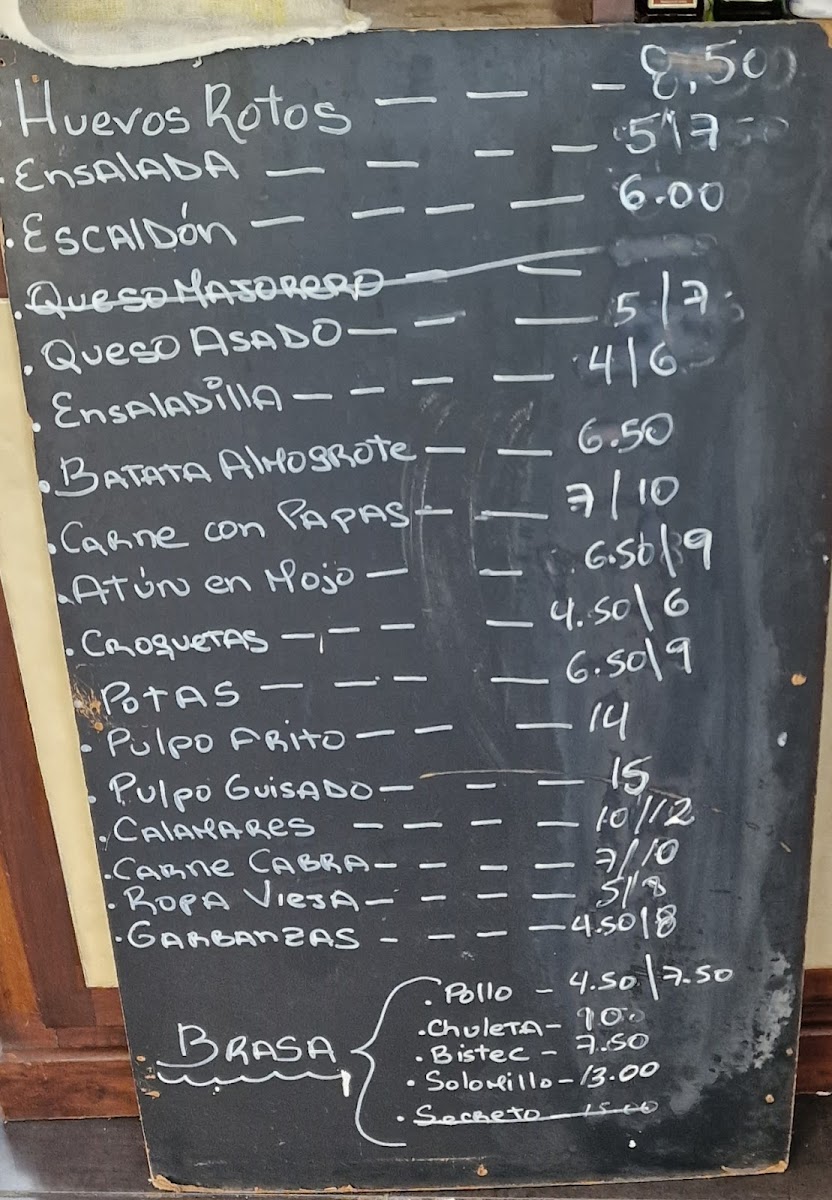 Huevos Rotos — — — 8,50
· Ensalada — — — — 5/7
· Escaldón — — — — 6.00
· Queso Majorero — —
· Queso Asado — — — 5/7
· Ensaladilla — — — — 4/6
· Batata Almogrote — — 6.50
· Carne con Papas — — 7/10
· Atún en Mojo — — 6.50/9
· Croquetas — — — — 4.50/6
Potas — — — — 6.50/9
· Pulpo Frito — — — 14
· Pulpo Guisado — — — 15
· Calamares — — — — 10/12
· Carne Cabra — — — — 7/10
· Ropa Vieja — — — — 5/8
· Garbanzas — — — — 4.50/8
Brasa
· Pollo — 4.50/7.50
· Chuleta — 10.
· Bistec — 7.50
· Solomillo — 13.00
· Secreto — 15.00